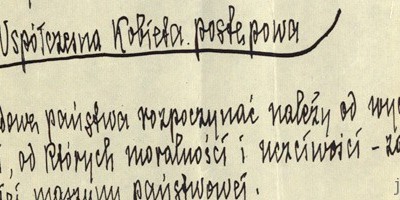 Współczesna Kobieta postępowa
państwa rozpoczynać należy od
od których moralności i uczciwości -
maszyny państwowej.
j